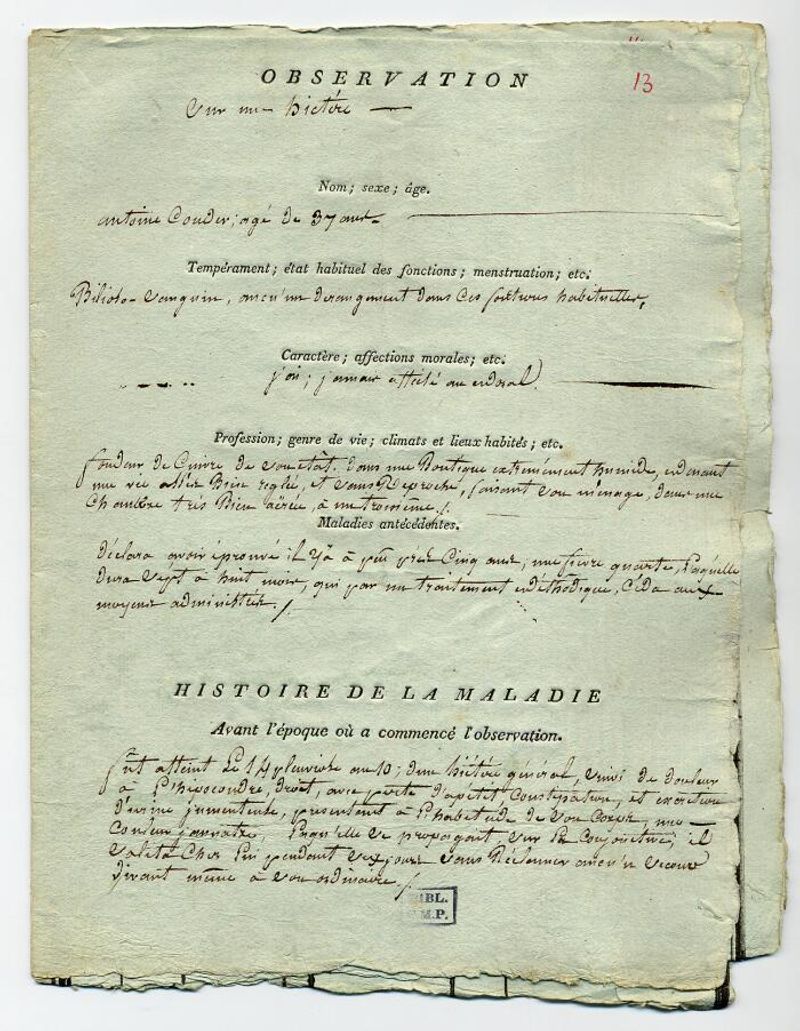 OBSERVATION
13
Sur un hictére
Nom; sexe; âge.
antoine Couder; agé de 37 ans
Tempérament; état habituel des fonctions; menstruation; etc.
Bilioso-sanguin, aucu'un derangement dans ces fo habituelles,
Caractère; affections morales; etc.
jamais affecté au moral.
Profession; genre de vie; climats et lieux habités; etc.
fondeur de Cuivre de son état. dans une Boutique extremement humide, menant
une vie assez Bien reglée, et sans Reproche, faisant son ménage, dans une
Chambre très Bien aërée, à un troisième./.
Maladies antécédentes.
déclara avoir éprouvé il y a à peu près Cinq ans, une fievre quarte, Laquelle
dura sept à huit mois, qui par un traitement méthodique, Céda aux
moyens administrés./
HISTOIRE DE LA MALADIE
Avant l'époque où a commencé l'observation.
fut atteint Le 14 pluviose an 10; d'un hictére général, suivi de douleur
à L'hipocondre, droit, avec perte d'apétit, Constipation, et excrétion
d'urine jumenteuse, présentant à L'habitude de son Corps, une
Couleur jaunatre, Laqu'elle se propageait sur La Conjonctive; il
resta Chez Lui pendant six jours sans Réclamer aucu'n secours
vivant même à son ordinaire./.
BIBL.
M.P.